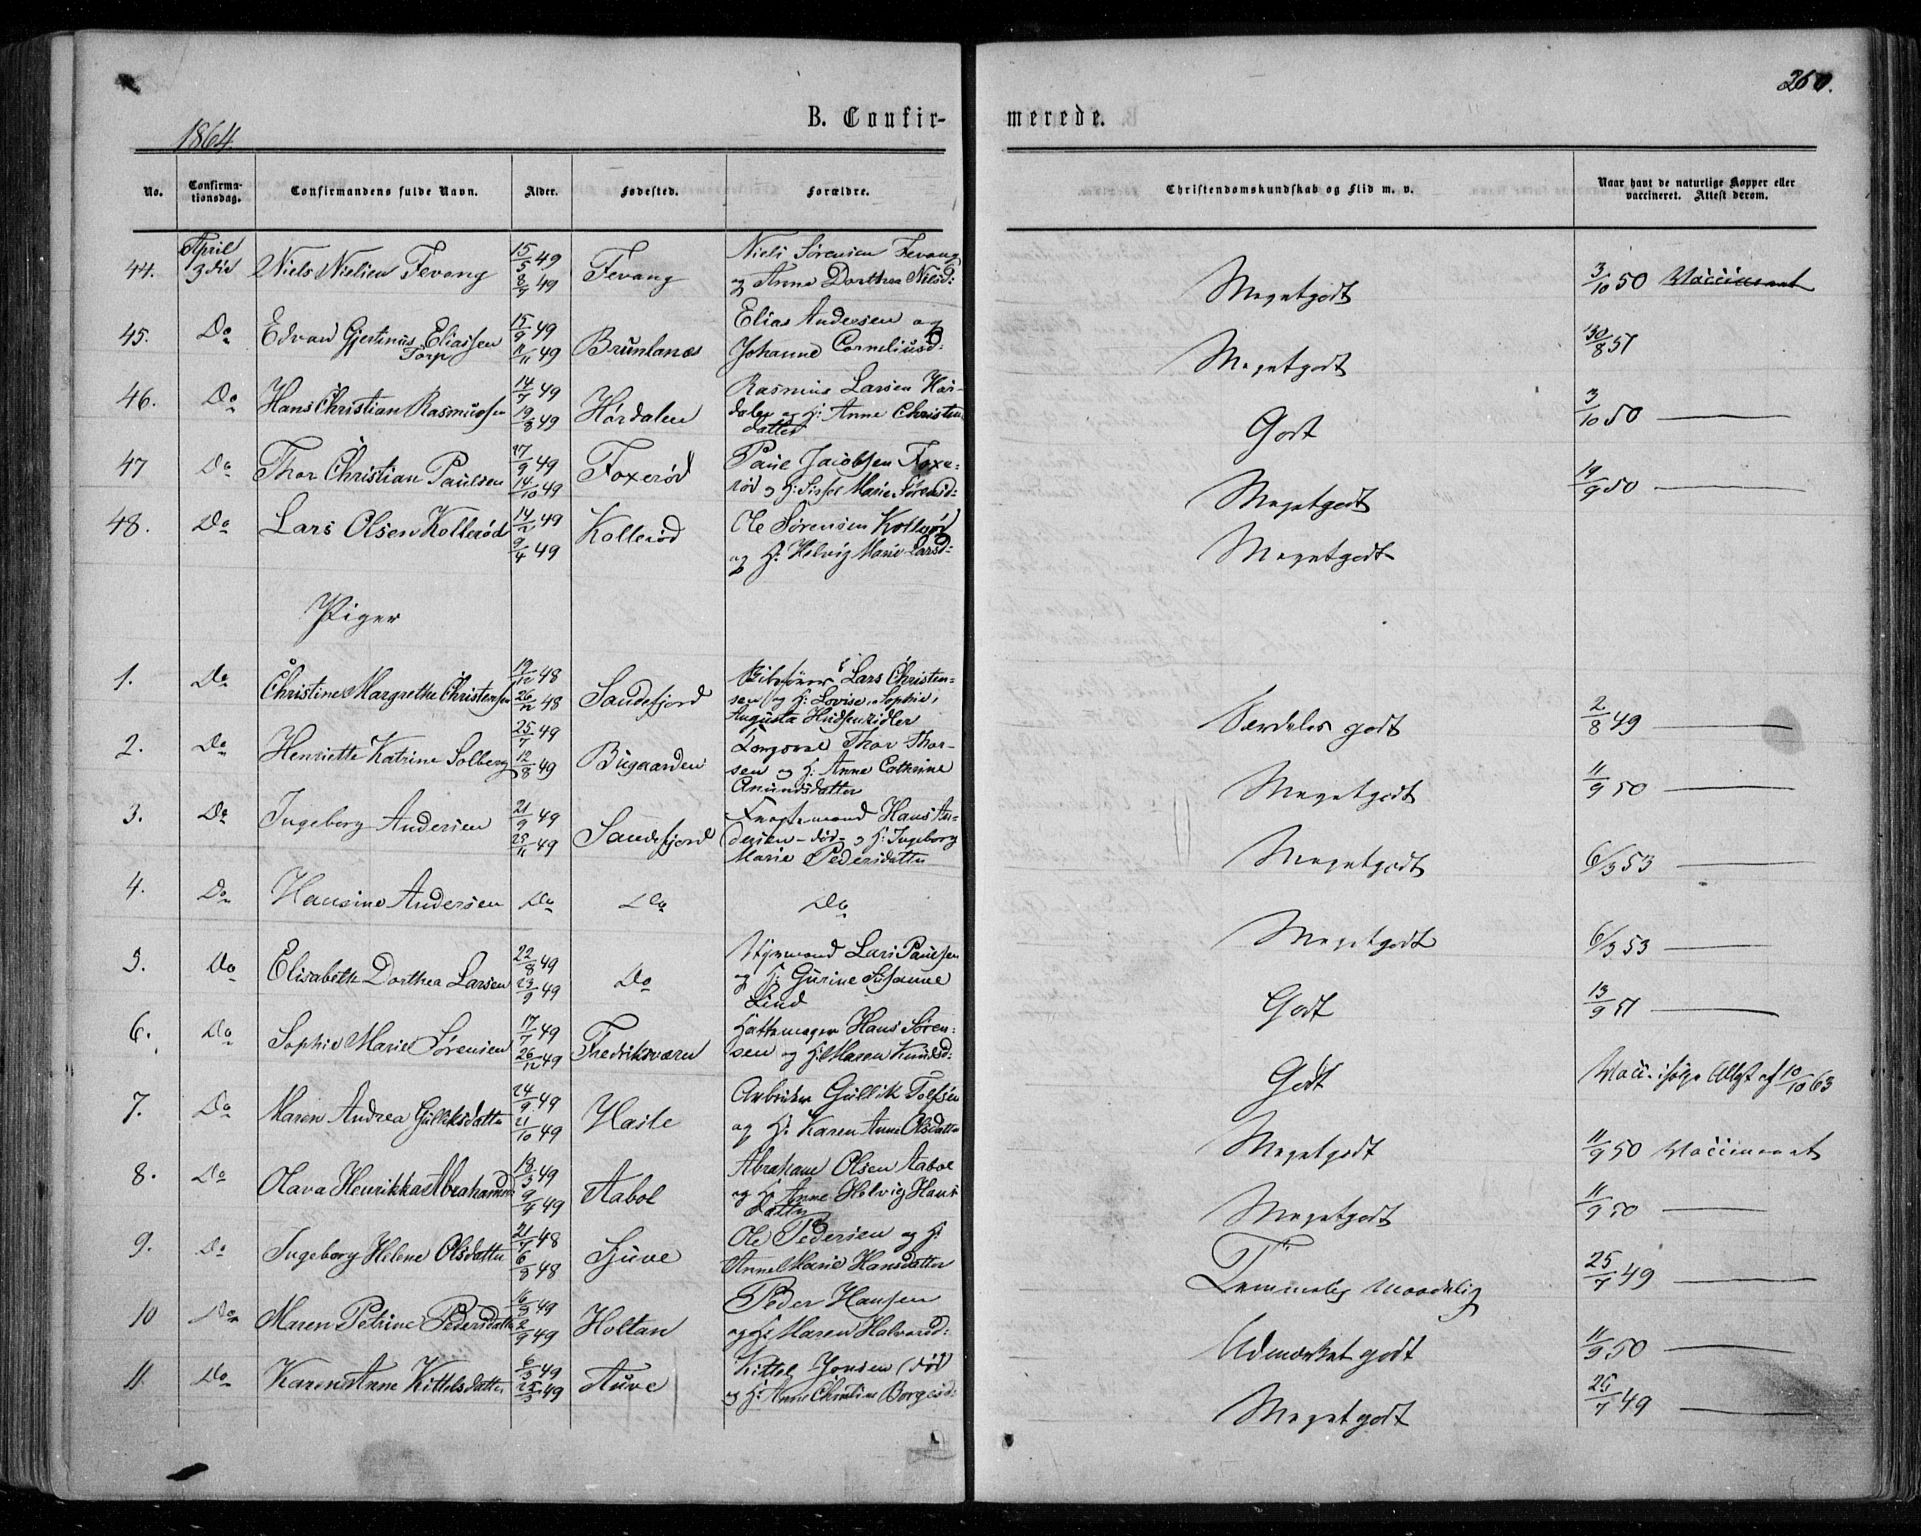 260.
B. Confirmerede.
1864.
No. Confirmationsdag. Confirmandens fulde Navn. Alder. Fødested. Forældre. Christendomskundskab og Flid m. v. Naar havt de naturlige Kopper eller vaccineret. Attest derom.
April
44. Niels Nielsen Fevang 15/5 49 Fevang Niels Sørensen Fevang
8/7 49 og Anne Dorthea Nilsd: Megetgodt 3/10 50 Vaccineret
45. Do Edvan Gjertinus Eliassen 15/9 49 Brunlanæs Elias Andersen og
Torp 11/11 49 Johanne Corneliusd: Megetgodt 30/8 51
46. Do Hans Christian Rasmussen 14/7 49 Hørdalen Rasmus Larsen Hør-
19/8 49 dalen og H: Anne Christen
datter Godt 3/10 50
47 Do Thor Christian Paulsen 17/9 49 Foxerød Paul Jacobsen Foxe-
14/10 49 rød og H: Sissel Marie Sørensd: Megetgodt 19/9 50
48. Do Lars Olsen Kollerød 14/2 49 Kollerød Ole Sørensen Kollerød
9/4 49 og H: Helvig Marie Larsd: Megetgodt
Piger
1. Do Christine Margrethe Christensen 19/12 48 Sandefjord Lars Christen-
26/12 48 sen og H: Lovise, Sophie,
Augusta Særdeles godt 2/8 49
2. Do Henriette Katrine Solberg 25/7 49 Bugaarden Thor Thor-
12/8 49 sen og H: Anne Cathrine
Amundsdatter Megetgodt 11/9 50
3. Do Ingeborg Andersen 21/9 49 Sandefjord Hans An-
25/11 49 dersen - død - og H: Ingeborg
Marie Pedersdatter Megetgodt 6/3 53
4. Do Hansine Andersen Do Do Do Megetgodt 6/3 53
5. Do Elisabeth Dorthea Larsen 22/8 49 Do Styrmand Lars Paulsen
23/9 49 og H: Gurine Susanne
Lind Godt 13/9 51
6. Do Sophie Marie Sørensen 17/7 49 Fredriksværn Hattemager Hans Søren-
26/12 49 sen og H: Maren Knudsd: Godt Vacc. ifølge Attest af 10/10 63
7. Do Maren Andrea Gulliksdatter 24/9 49 Hasle Arbeider Gullik Tolfsen
21/10 49 og H: Karen Anne Olsdatter Megetgodt 11/9 50 Vaccineret
8. Do Olava Henrikka Abrahamsen 18/3 49 Aabol Abraham Olsen Aabol
9/4 49 og H: Anne Helvig Hans
datter Megetgodt 11/9 50
9. Do Ingeborg Helene Olsdatter 21/7 48 Sjuve Ole Pedersen og H:
6/8 48 Anne Marie Hansdatter Temmelig maadelig 25/7 49
10 Do Maren Petrine Pedersdatter 16/5 49 Holtan Peder Hansen
2/9 49 og H: Maren Halvorsd: Udmærket godt 11/9 50
11 Do Karen Anne Kittelsdatter 6/3 49 Auve Kittel Jonsen (død)
25/3 49 og H: Anne Christine Borgesd: Megetgodt 25/7 49